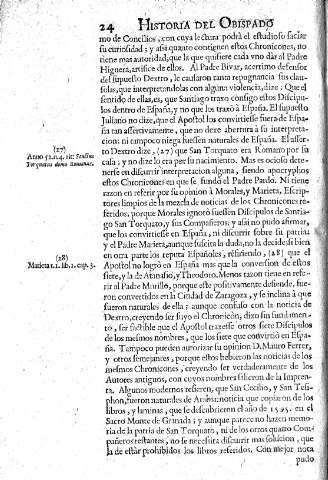 24 HISTORIA DEL OBISPADO
mo de Concilios, con cuya lectura podrà el estudioso saciar
su curiosidad; y assi quanto contienen estos Chronicones, no
tiene mas autoridad, que la que quisiere cada vno dàr al Padre
Higuera, artifice de ellos. Al Padre Bivar, acerrimo defensor
del supuesto Dextro, le causaron tanta repugnancia sus clau-
sulas, que interpretandolas con alguna violencia, dize: Que el
sentido de ellas, es, que Santiago traxo consigo estos Discipu-
los dentro de España, y no que los traxò à España. El supuesto
Juliano no dize, que el Apostol los convirtiesse fuera de Espa-
ña tan assertivamente, que no dexe abertura à su interpreta-
cion: ni tampoco niega fuessen naturales de España. El asser-
to Dextro dize, (27) que San Torquato era Romano por su
casa; y no dize lo era por su nacimiento. Mas es ocioso dete-
nerse en discurrir interpretacion alguna, siendo apocryphos
estos Chronicones en que se fundò el Padre Pardo. Ni tiene
razon en referir por su opinion à Morales, y Marieta, Escrip-
tores limpios de la mezcla de noticias de los Chronicones re-
feridos, porque Morales ignorò fuessen Discipulos de Santia-
go San Torquato, y sus Compañeros; y assi no pudo afirmar,
que los convirtiesse en España, ni discurrir sobre su patria:
y el Padre Marieta, aunque suscita la duda, no la decide: si bien
en otra parte los reputa Españoles, refiriendo, (28) que el
Apostol no logrò en España mas que la conversion de estos
siete, y la de Atanasio, y Theodoro. Menos razon tiene en refe-
rir al Padre Murillo, porque este positivamente defiende, fue-
ron convertidos en la Ciudad de Zaragoza, y se inclina à que
fueron naturales de ella; aunque confuso con la noticia de
Dextro, creyendo ser suyo el Chronicòn, dixo sin fundamen-
to, ser factible que el Apostol traxesse otros siete Discipulos
de los mesmos nombres, que los siete que convirtiò en Espa-
ña. Tampoco pueden autorizar la opinion D. Mauro Ferrer,
y otros semejantes, porque estos bebieron las noticias de los
mesmos Chronicones, creyendo ser verdaderamente de los
Autores antiguos, con cuyos nombres salieron de la Impren-
ta. Algunos modernos refieren, que San Cecilio, y San Tesi-
phon, fueron naturales de Arabia: noticia que copiaron de los
libros, y laminas, que se descubrieron el año de 1595. en el
Sacro Monte de Granada; y aunque parece no hazen memo-
ria de la patria de San Torquato, ni de los otros quatro Com-
pañeros restantes, no se necessita discurrir mas solucion, que
la de estàr prohibidos los libros referidos. Con mejor nota
pudo
(27)
Anno 52. n. 4. ib:
Torquatus domo Romanus.
(28)
Marieta t. 1. lib. 2. cap. 3.